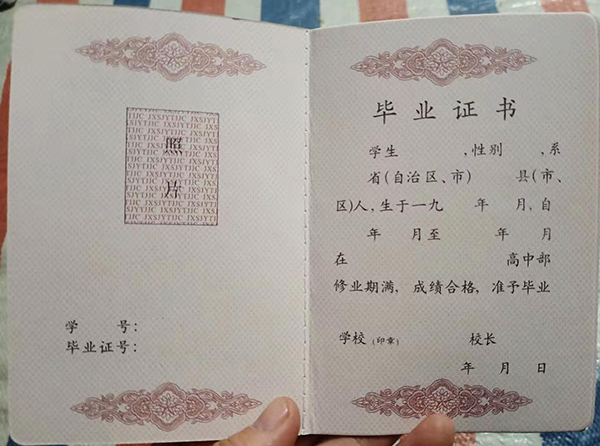 JXSJYTJC JXSJYTJC JXS
照
片
学 号：
毕业证号：
毕业证书
学生 ，性别 ，系
省（自治区、市） 县（市、
区）人，生于一九 年 月，自
年 月至 年 月
在 高中部
修业期满，成绩合格，准予毕业
学校（印章） 校长
年 月 日